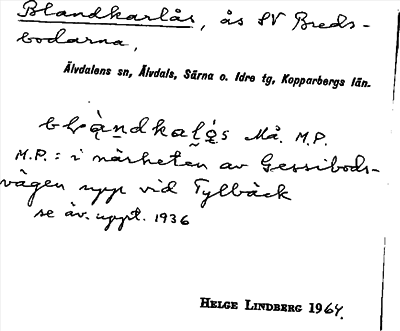 Blandkarlås, ås SV Breds-
bodarna,
Älvdalens sn, Älvdals, Särna o. Idre tg, Kopparbergs län.
Må. M.P.
M.P.: i närheten av Gessibods-
vägen upp vid Tylbäck
se äv. uppt. 1936
HELGE LINDBERG 1964.